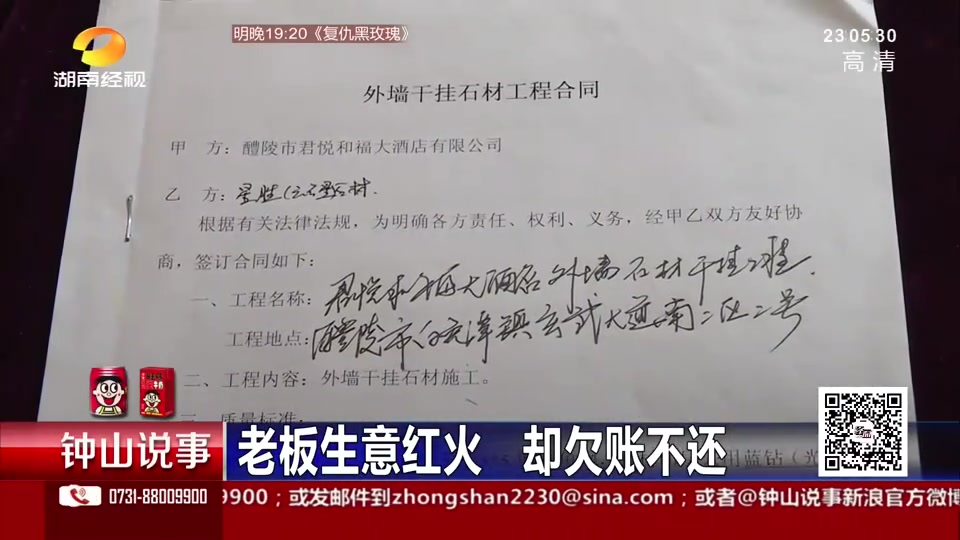 明晚19:20《复仇黑玫瑰》
23 05 30
高清
湖南经视
外墙干挂石材工程合同
甲 方：醴陵市君悦和福大酒店有限公司
乙 方：
根据有关法律法规，为明确各方责任、权利、义务，经甲乙双方友好协
商，签订合同如下：
一、工程名称：君悦和福大酒店外墙石材干挂工程.
工程地点：醴陵市白兔潭镇玄武大道南二区二号
二、工程内容：外墙干挂石材施工。
三、质量标准：
用蓝钻（光
钟山说事
老板生意红火 却欠账不还
0731-88009900
9900；或发邮件到zhongshan2230@sina.com；或者@钟山说事新浪官方微博